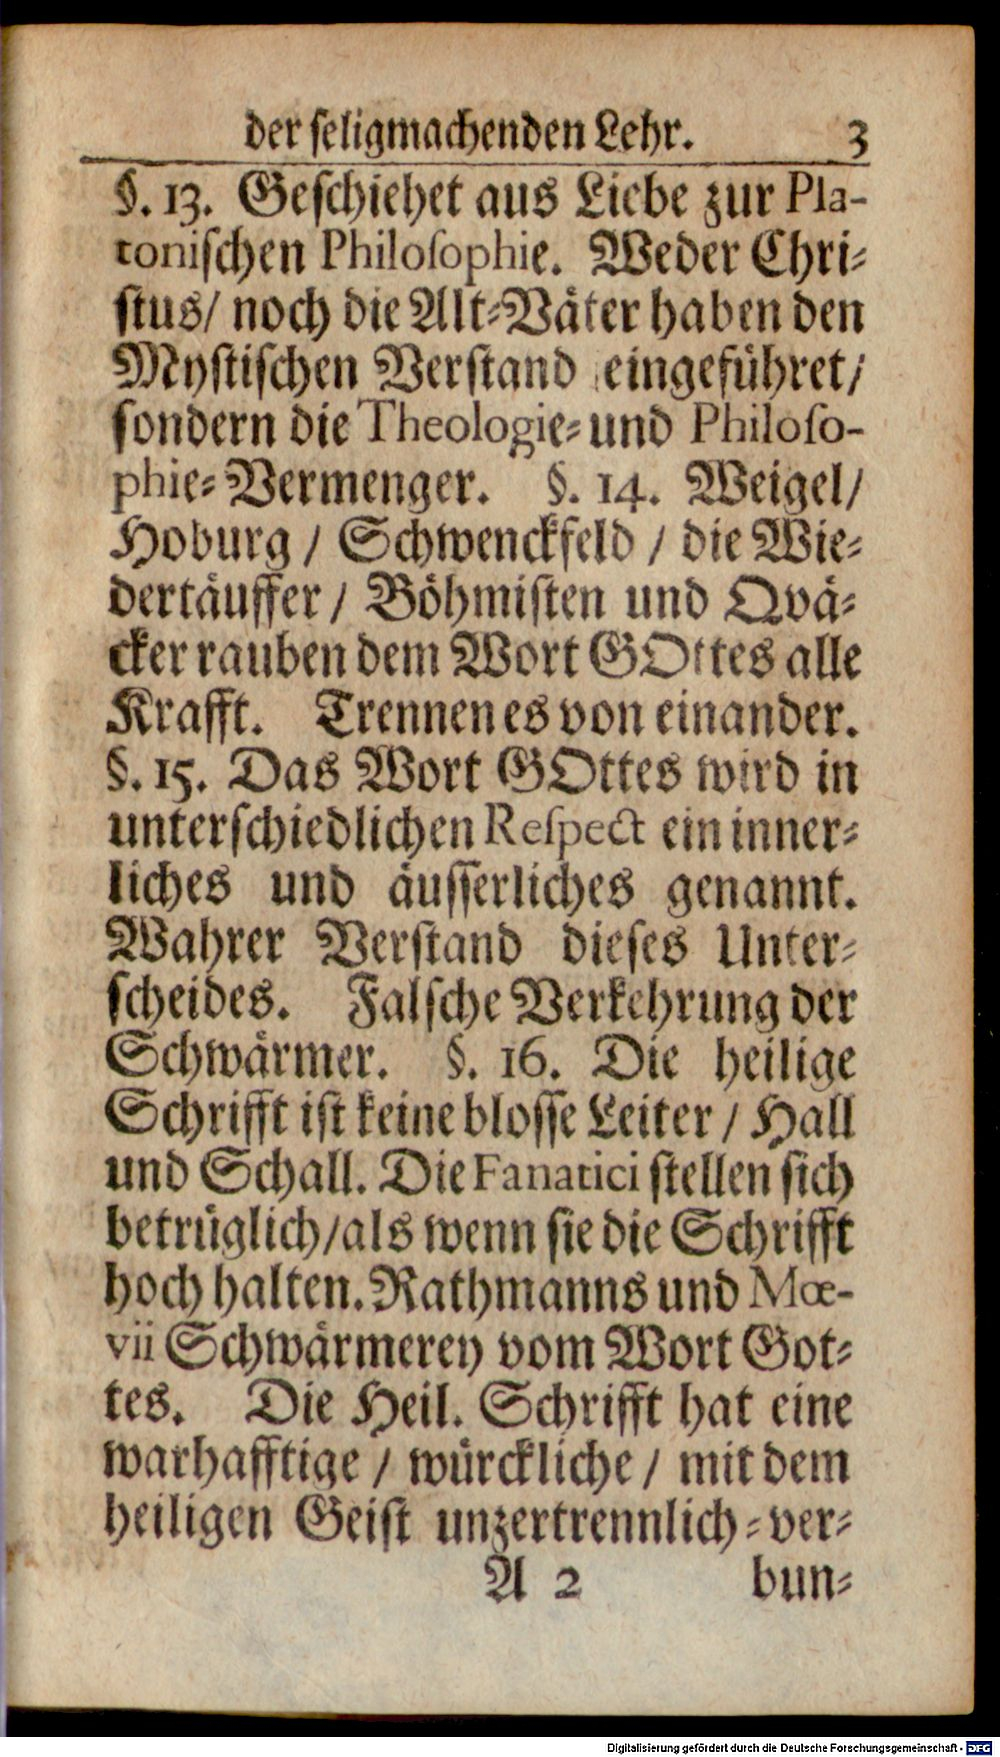 der seligmachenden Lehr. 3
§. 13. Geschiehet aus Liebe zur Pla-
tonischen Philosophie. Weder Chri-
stus/ noch die Alt-Väter haben den
Mystischen Verstand eingeführet/
sondern die Theologie- und Philoso-
phie-Vermenger. §. 14. Weigel/
Hoburg / Schwenckfeld / die Wie-
dertäuffer / Böhmisten und Qvä-
cker rauben dem Wort GOttes alle
Krafft. Trennen es von einander.
§. 15. Das Wort GOttes wird in
unterschiedlichen Respect ein inner-
liches und äusserliches genannt.
Wahrer Verstand dieses Unter-
scheides. Falsche Verkehrung der
Schwärmer. §. 16. Die heilige
Schrifft ist keine blosse Leiter / Hall
und Schall. Die Fanatici stellen sich
betrüglich/als wenn sie die Schrifft
hoch halten. Rathmanns und Mœ-
vii Schwärmerey vom Wort Got-
tes. Die Heil. Schrifft hat eine
warhafftige / würckliche / mit dem
heiligen Geist unzertrennlich-ver-
A 2 bun-
Digitalisierung gefördert durch die Deutsche Forschungsgemeinschaft - DFG